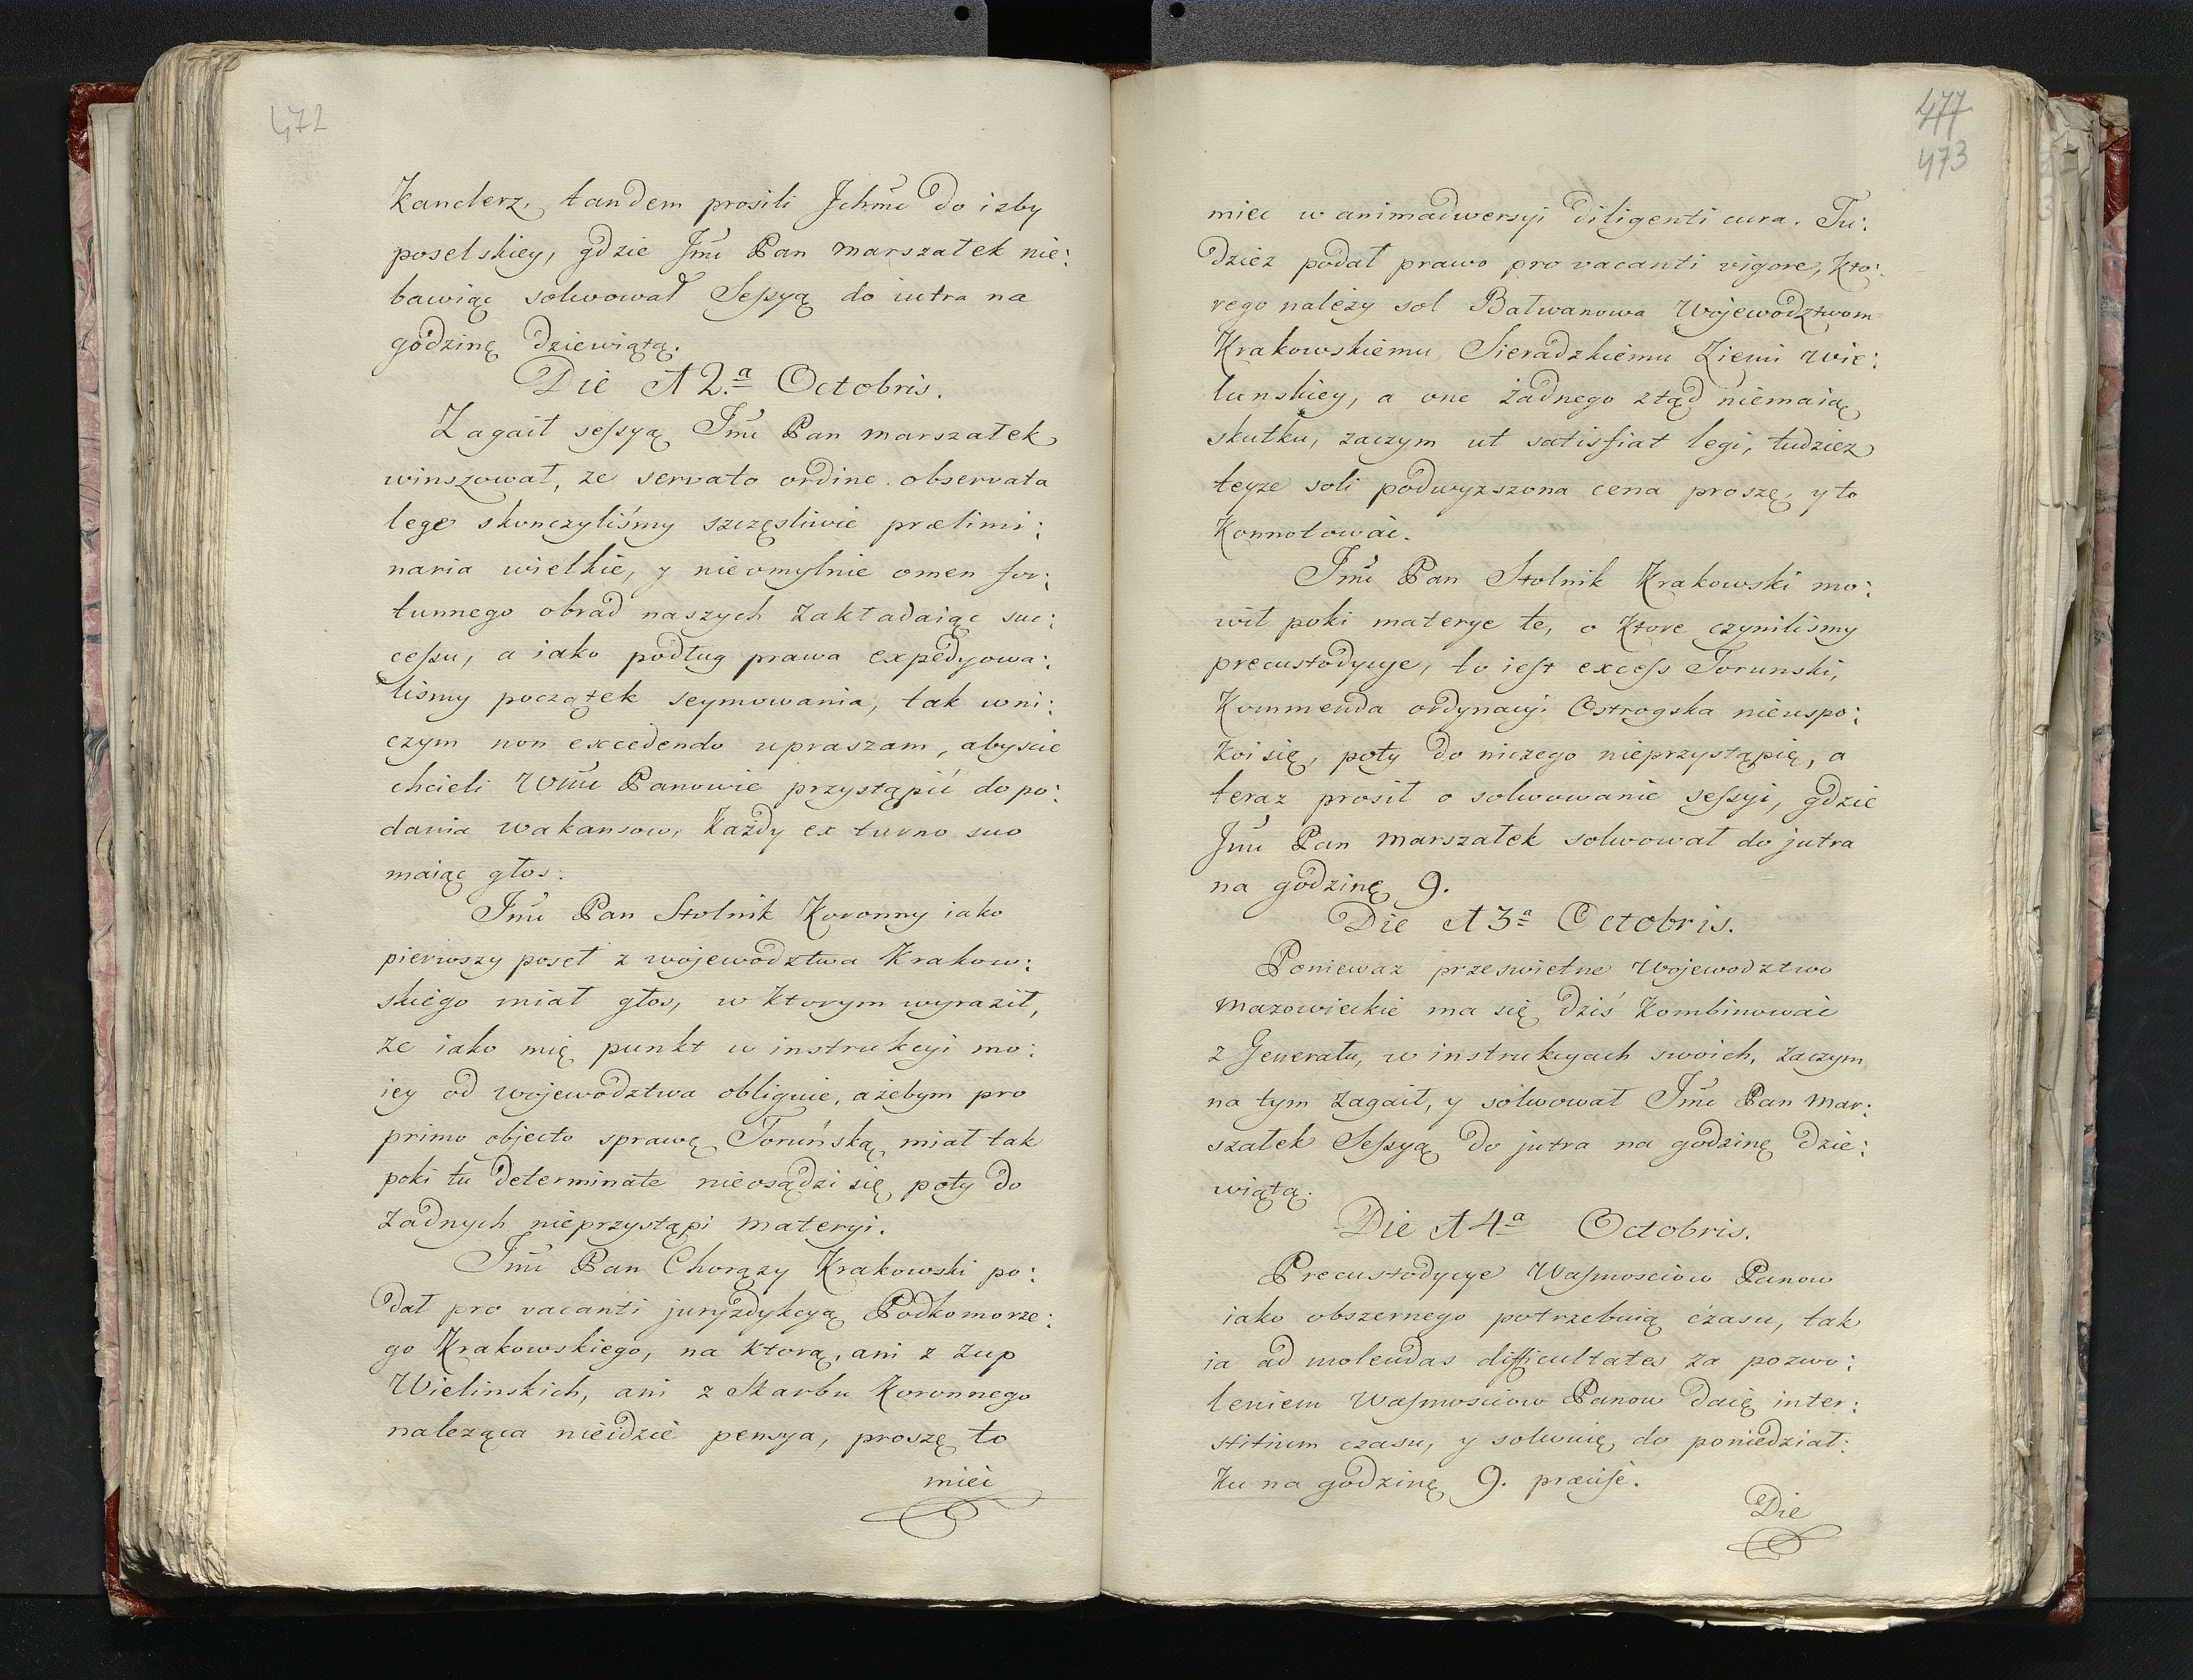 472
Kanclerz, tandem prosili Jchmc do izby
poselskiey, gdzie Jmć Pan marszałek nie:
bawiąc solwował Seſsyą do iutra na
godzinę dziewiątą.
Die 12.ª Octobris.
Zagaił seſsyą Jmć Pan marszałek
winszował, ze servato ordine observata
lege skonczyliśmy szczęsliwie prælimi:
naria wielkie, y nieomylnie omen for:
tunnego obrad naszych zakładaiąc suc:
ceſsu, a iako podług prawa expedyowa:
lismy początek seymowania, tak wni:
czym non excedendo upraszam, abyscie
chcieli Wmć Panowie przystąpić do po:
dania wakansow, Każdy ex turno suo
maiąc głos.
Jmć Pan Stolnik Koronny iako
pierwszy poseł z wojewodztwa Krakow:
skiego miał głos, w Ktorym wyraził,
ze iako mię punkt w instrukcyi mo:
iey od wojewodztwa obliguie, ażebym pro
primo objecto sprawę Toruńską miał tak
poki tu determinate nieosądzi się, poty do
Zadnych nieprzystąpi materyi.
Jmć Pan Chorązy Krakowski po:
dał pro vacanti juryzdykcyą Podkomorze:
go Krakowskiego, na Ktorą, ani z zup
Wielinskich, ani z Skarbu Koronnego
naleząca nieidzie pensya, proszę to
mieć
477
473
miec w animadwersyi diligenti cura. Tu:
dziez podał prawo pro vacanti vigore, Kto:
rego należy sol Bałwanowa Wojewodztwom
Krakowskiemu Sieradzkiemu Ziemi Wie:
lunskiey, a one żadnego ztąd niemaią
skutku, zaczym ut satisfiat legi, tudziez
teyze soli podwyzszona cena proszę, y to
Konnotować.
Jmć Pan Stolnik Krakowski mo:
wił poki materye te, o Ktore czynilismy
precustodycye, to ieſt exceſs Torunski,
Kommenda ordynacyi Ostrogska nieuspo:
koi się, poty do niczego nieprzystąpię, a
teraz prosił o solwowanie seſsyi, gdzie
Jmć Pan marszałek solwował do jutra
na godzinę 9.
Die 13ª Octobris.
Poniewaz przeswietne Wojewodztwo
mazowieckie ma się dziś Kombinować
z Generału, w instrukcyach swoich, zaczym
na tym zagaił, y solwował Jmć Pan mar:
szałek Seſsyą do jutra na godzinę dzie:
wiątą.
Die 14ª Octobris.
Precustodycye Waſmosciow Panow
iako obszernego potrzebuią czasu, tak
ia ad molendas difficultates za pozwo:
leniem Waſmosciow Panow daię inter:
stitium czasu, y solwuię do poniedział:
Ku na godzinę 9. præcise.
Die